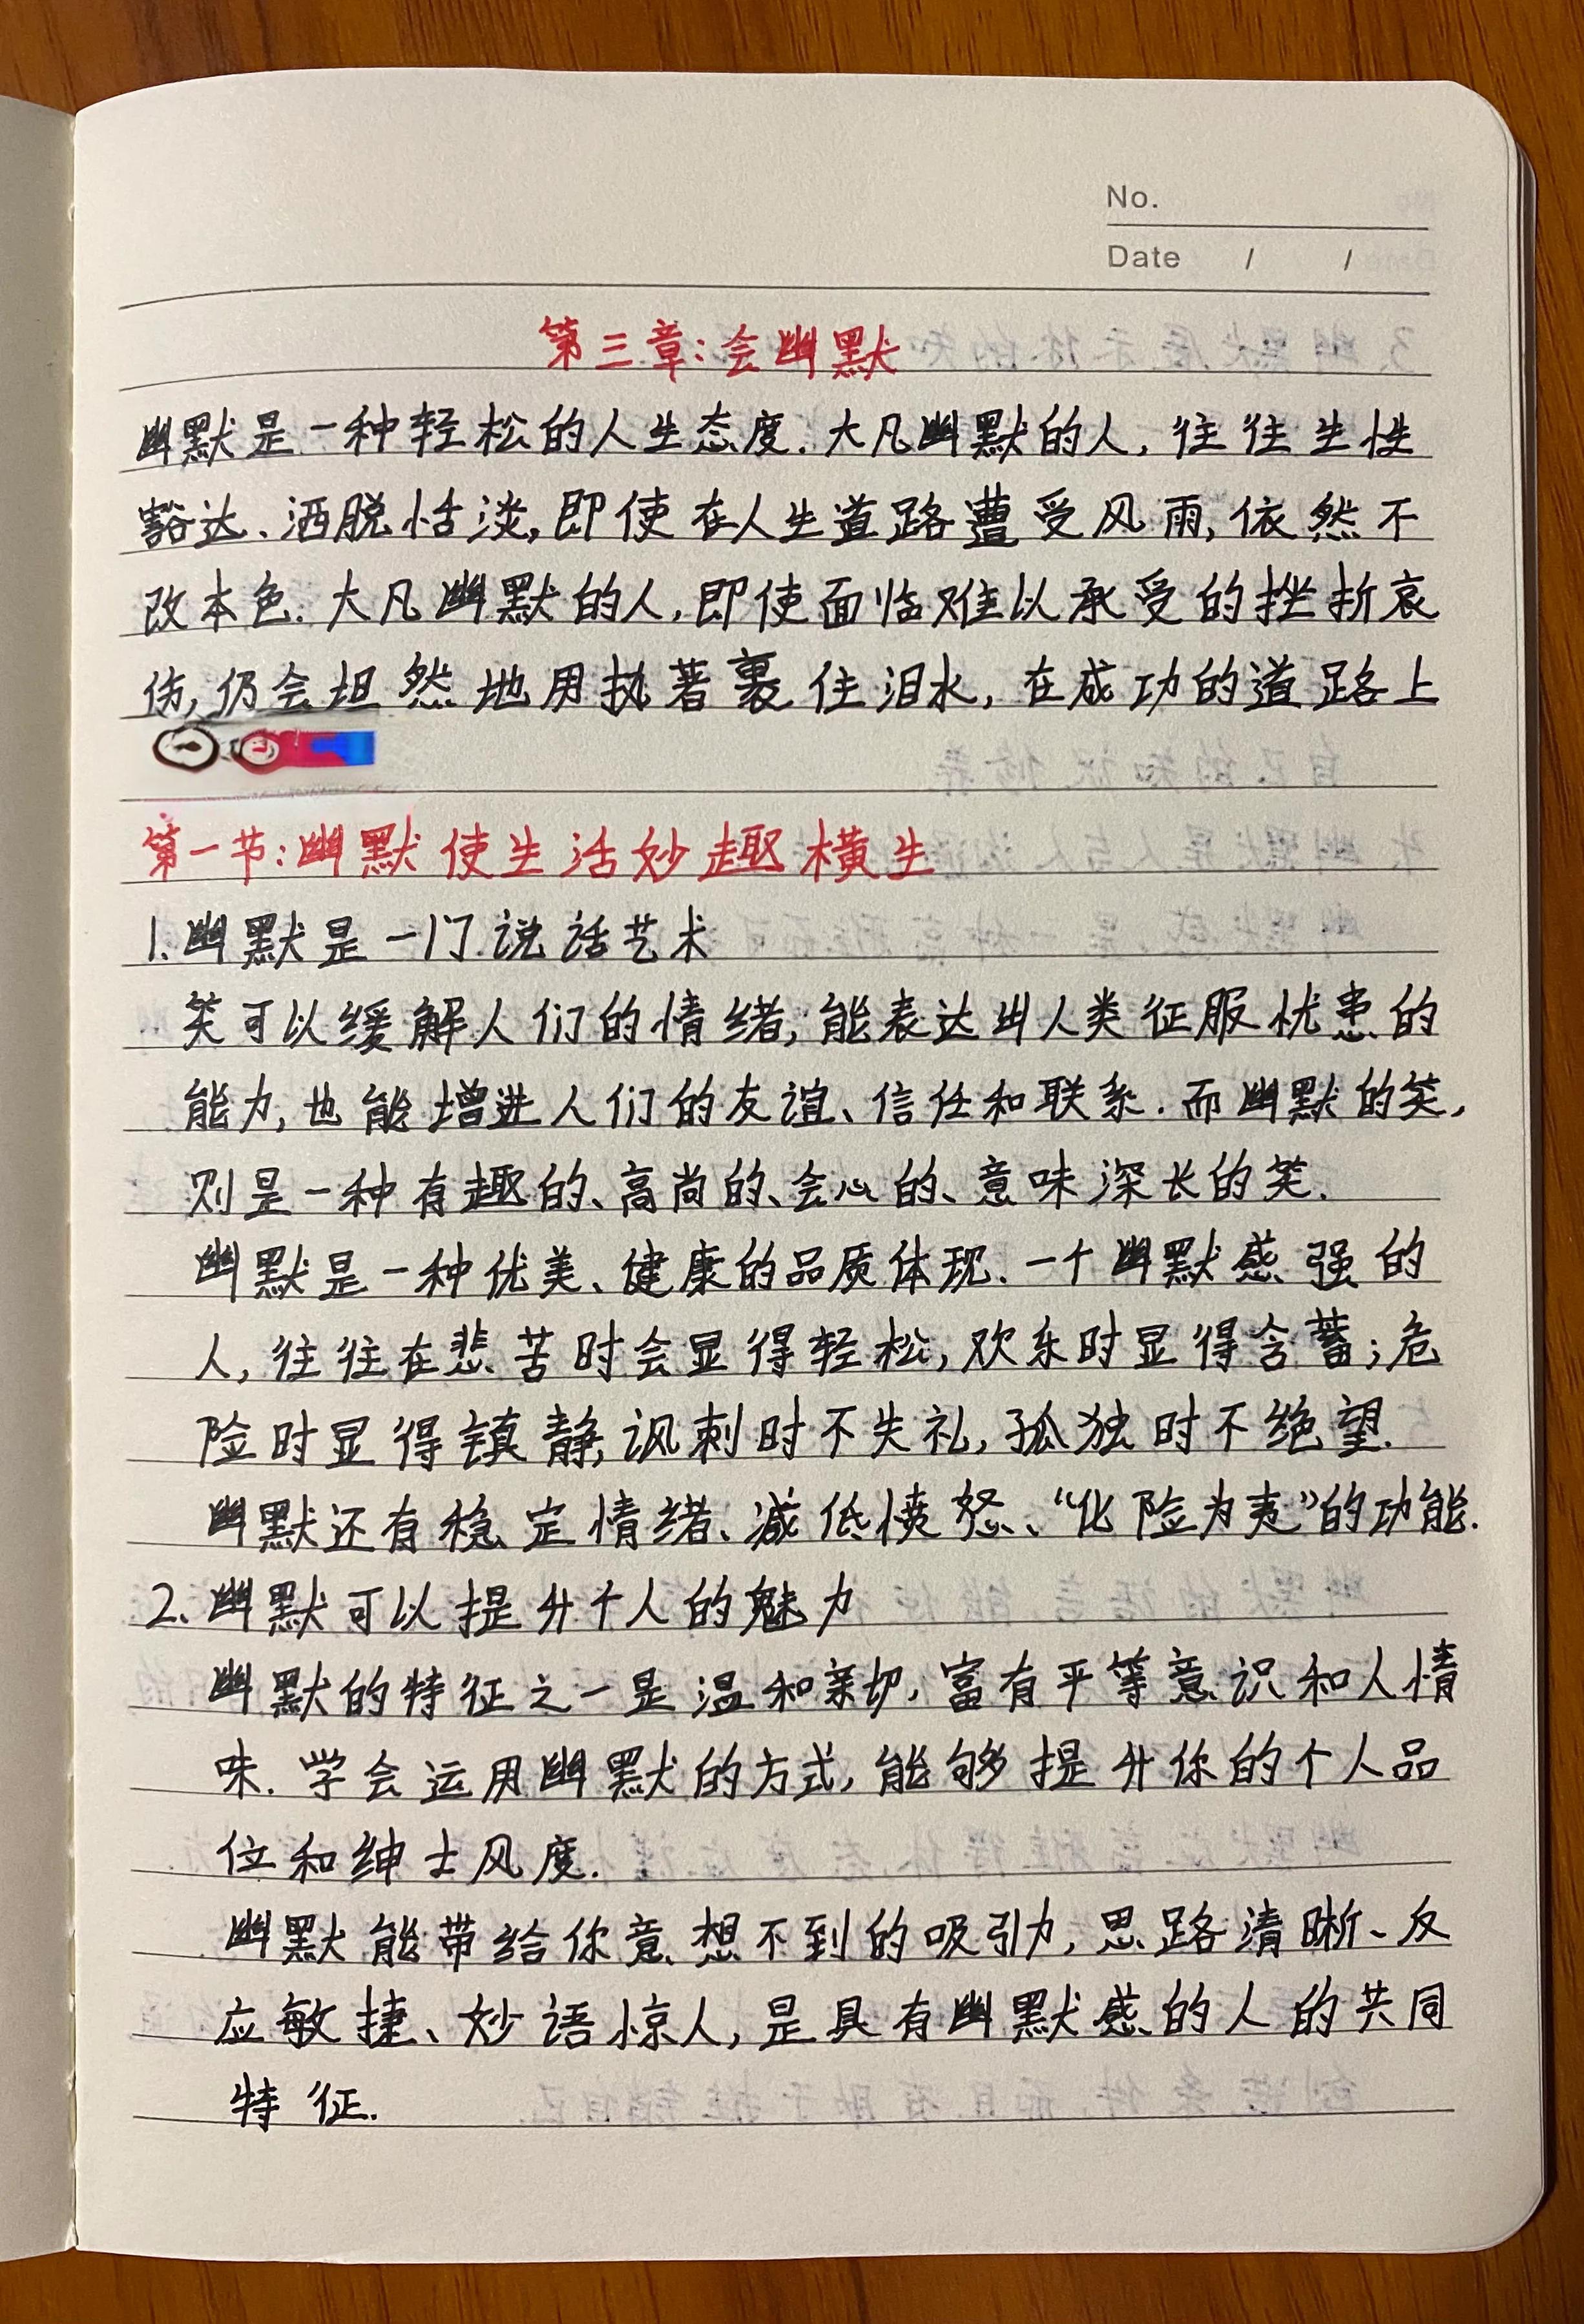 No.
Date / /
第三章:会幽默
幽默是一种轻松的人生态度.大凡幽默的人,往往生性
豁达、洒脱恬淡,即使在人生道路遭受风雨,依然不
改本色.大凡幽默的人,即使面临难以承受的挫折哀
伤,仍会坦然地用执著裹住泪水,在成功的道路上
第一节:幽默使生活妙趣横生
1.幽默是一门说话艺术
笑可以缓解人们的情绪,能表达出人类征服忧患的
能力,也能增进人们的友谊、信任和联系.而幽默的笑,
则是一种有趣的、高尚的、会心的、意味深长的笑.
幽默是一种优美、健康的品质体现.一个幽默感强的
人,往往在悲苦时会显得轻松,欢乐时显得含蓄;危
险时显得镇静,讽刺时不失礼,孤独时不绝望.
幽默还有稳定情绪、减低愤怒、“化险为夷”的功能.
2.幽默可以提升个人的魅力
幽默的特征之一是温和亲切,富有平等意识和人情
味.学会运用幽默的方式,能够提升你的个人品
位和绅士风度.
幽默能带给你意想不到的吸引力,思路清晰、反
应敏捷、妙语惊人,是具有幽默感的人的共同
特征.